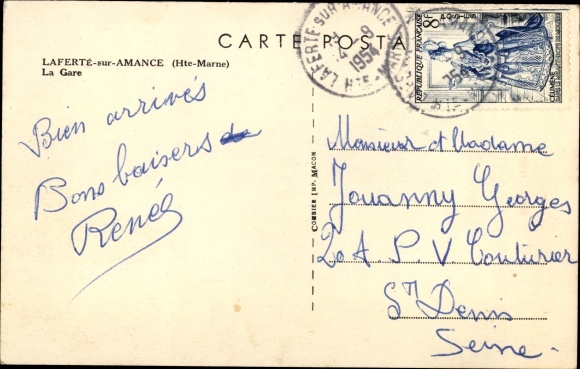 CARTE POSTALE
LAFERTÉ-sur-AMANCE (Hte-Marne)
La Gare
LAFERTÉ-SUR-AMANCE
1954
Hte MARNE
8F
POSTES
REPUBLIQUE FRANÇAISE
CÉLIMÈNE
Bien arrivés
Bons baisers
Renée
COMBIER IMP. MACON
Monsieur et Madame
Jouanny Georges
20 A. P. V Couturier
St Denis
Seine.